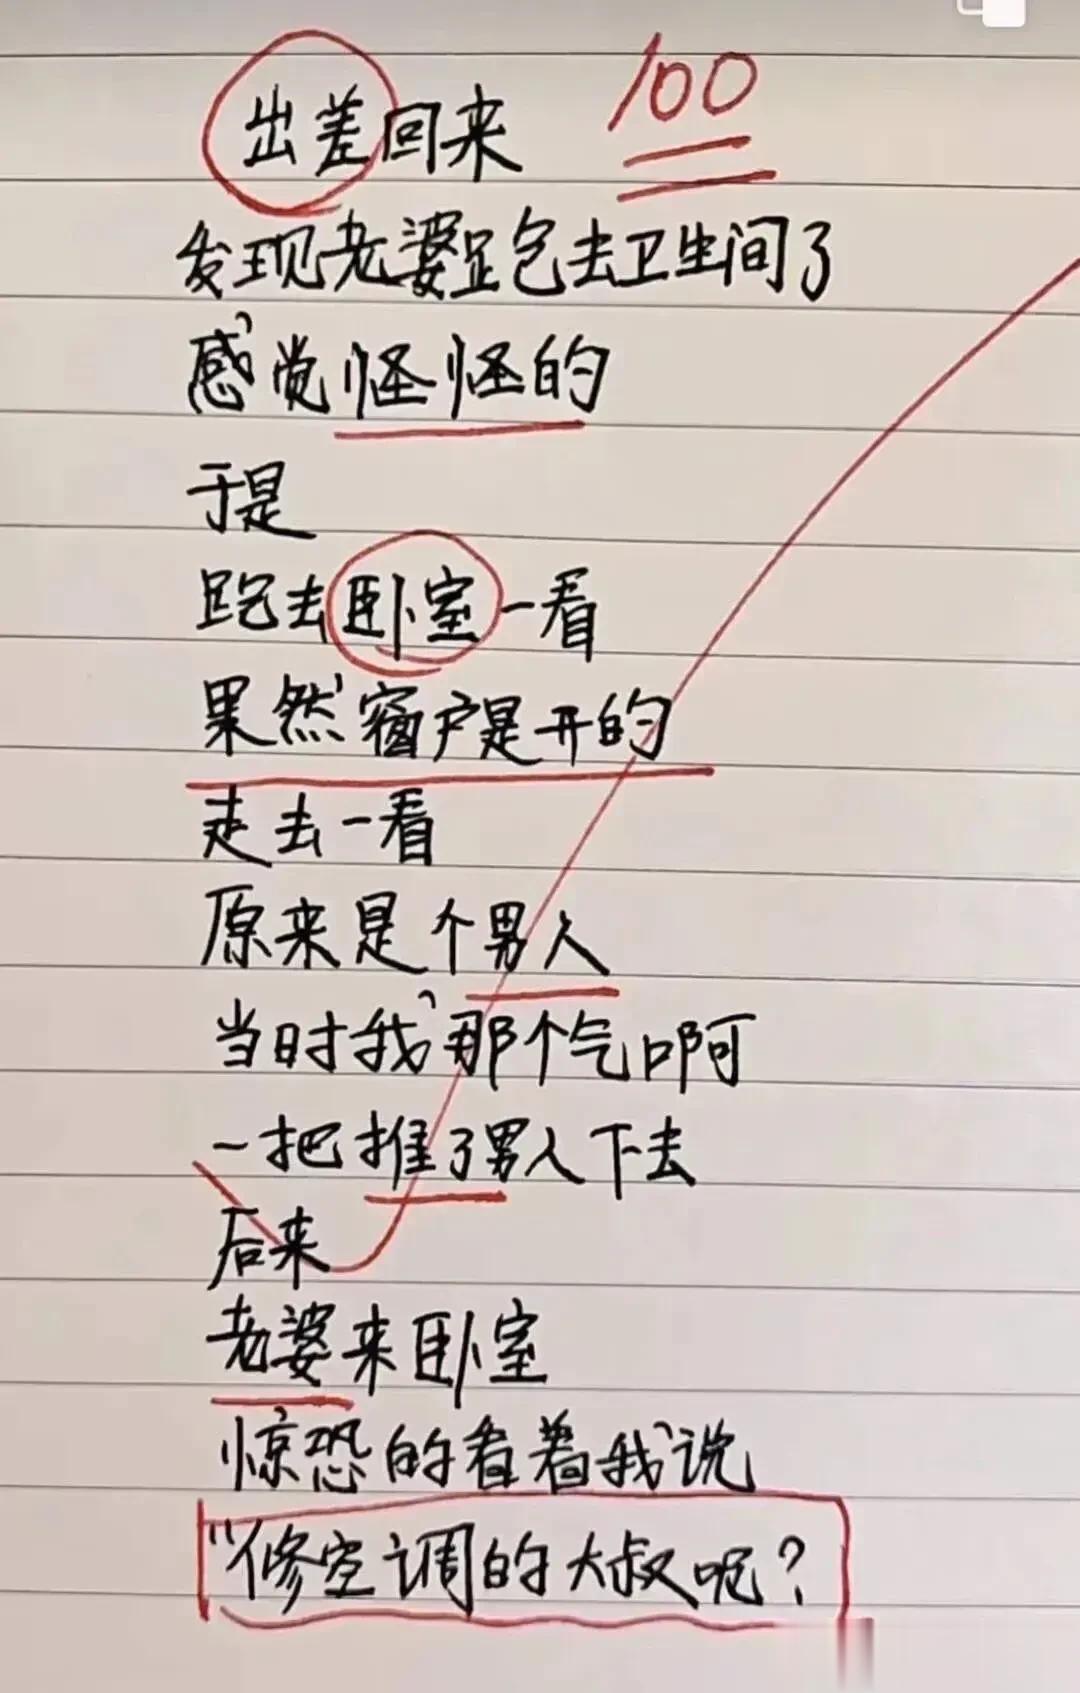 出差回来 100
发现老婆跑包去卫生间了
感觉怪怪的
于是
跑去卧室一看
果然窗户是开的
走去一看
原来是个男人
当时我那个气啊
一把推了男人下去
后来
老婆来卧室
惊恐的看着我说
"修空调的大叔呢?